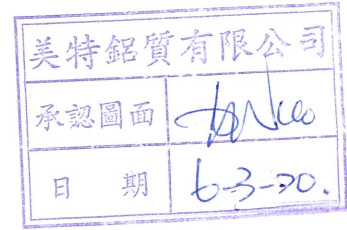 美特鋁質有限公司
承認圖面
日 期 6-3-20.